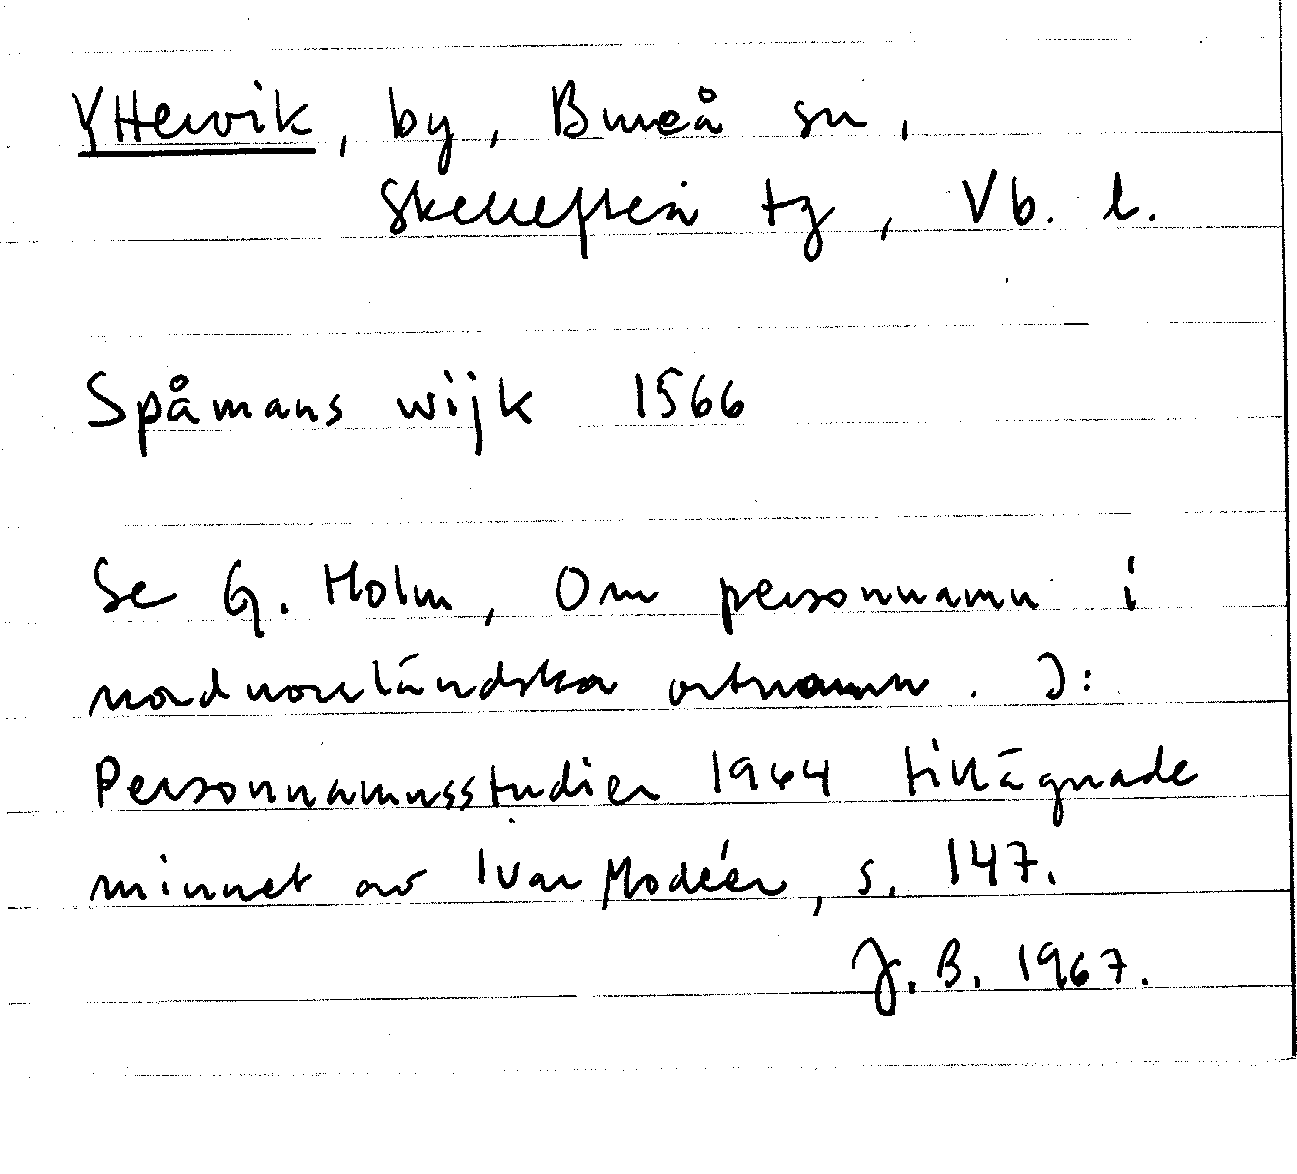 Yttervik, by, Bureå sn,
Skellefteå tg, Vb. l.
Spåmans wijk 1566
Se G. Holm, Om personnamn i
nordnorrländska ortnamn. I:
Personnamnsstudier 1964 tillägnade
minnet av Ivar Modéer, s. 147.
J. B. 1967.